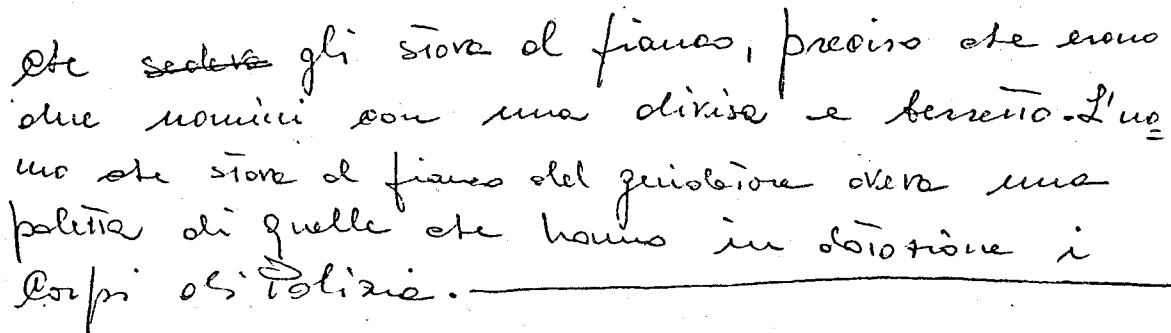 che sedeva gli stava al fianco, preciso che erano
due uomini con una divisa e berretto. L'uo=
mo che stava al fianco del guidatore aveva una
paletta di quelle che hanno in dotazione i
Corpi di Polizia.